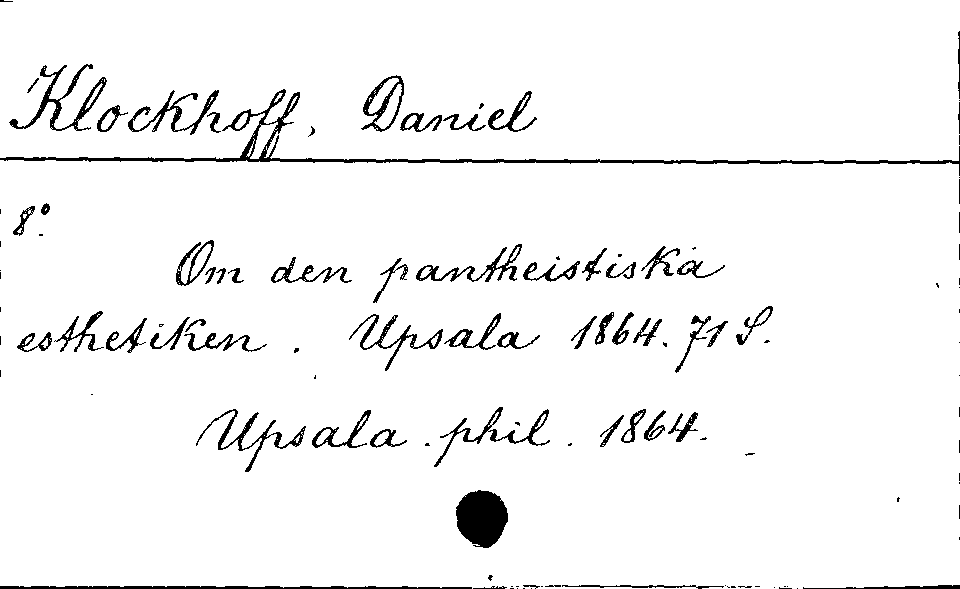 Klockhoff, Daniel
8°.
Om den pantheistiska
esthetiken. Upsala 1864. 71 S.
Upsala. phil. 1864.